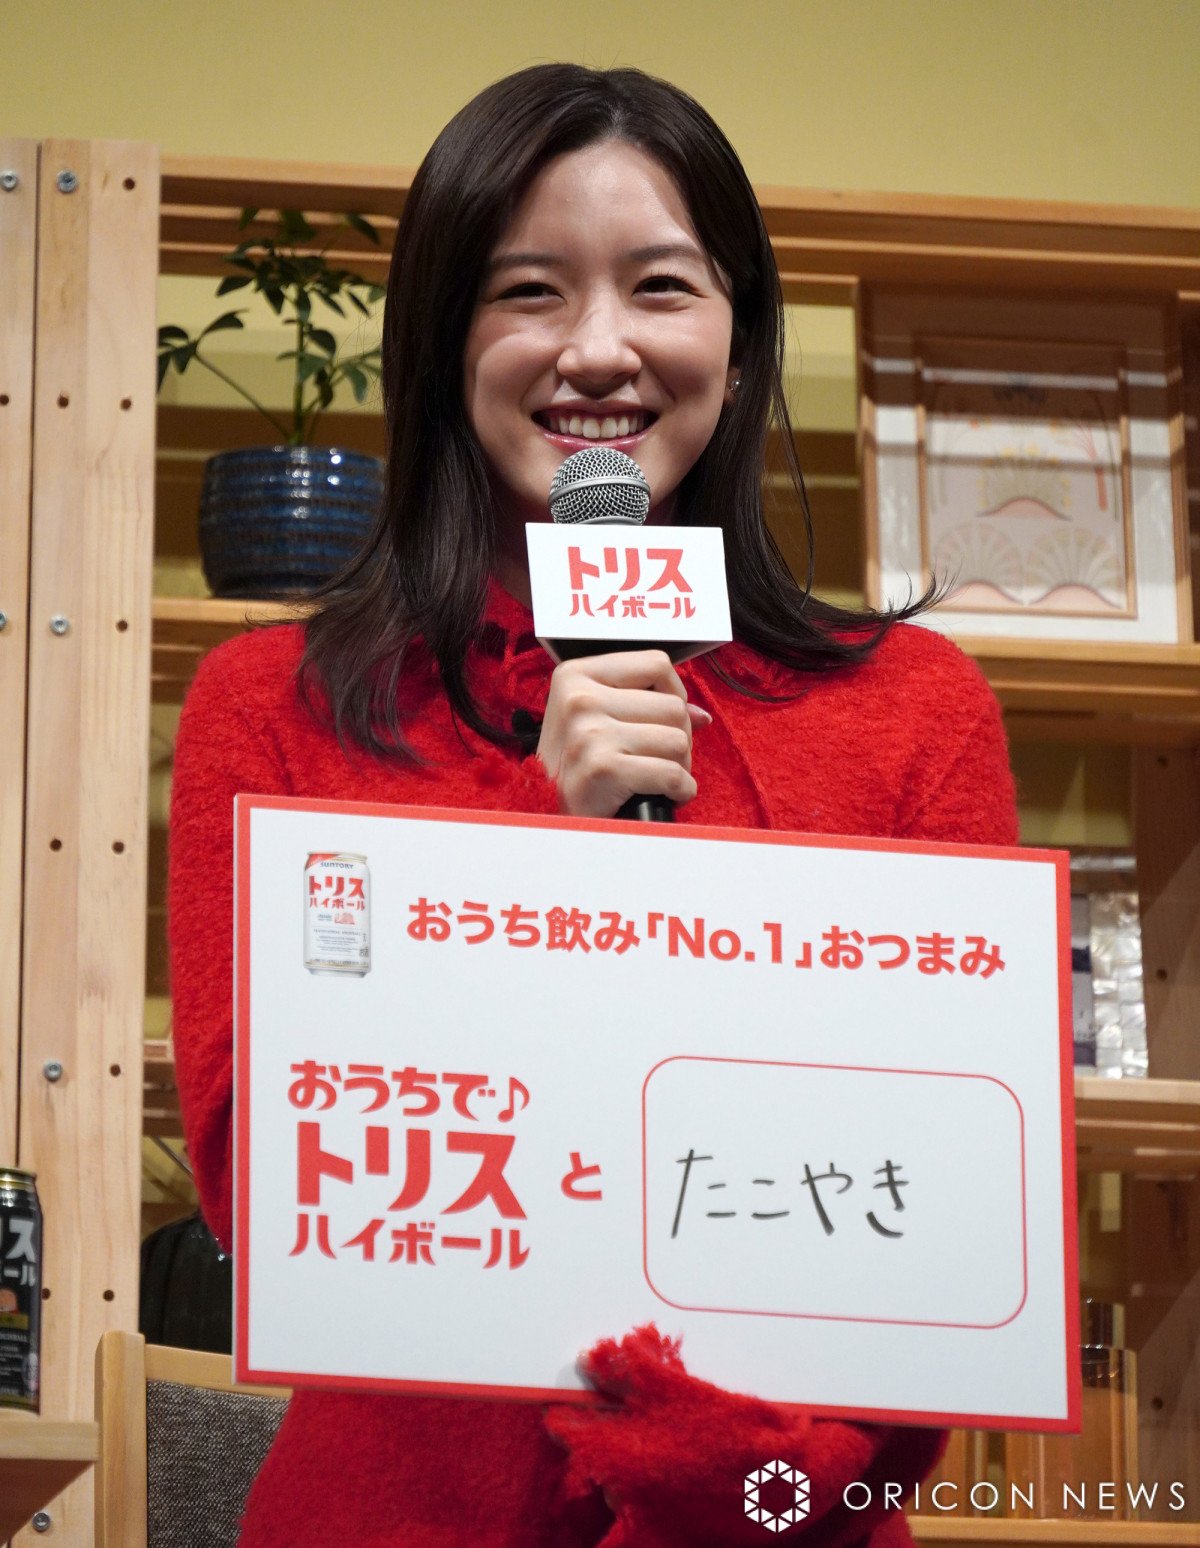 トリス
ハイボール
SUNTORY
トリス
ハイボール
おうち飲み「No.1」おつまみ
おうちで♪
トリス
ハイボール
と
たこやき
リス
ボール
ORICON NEWS